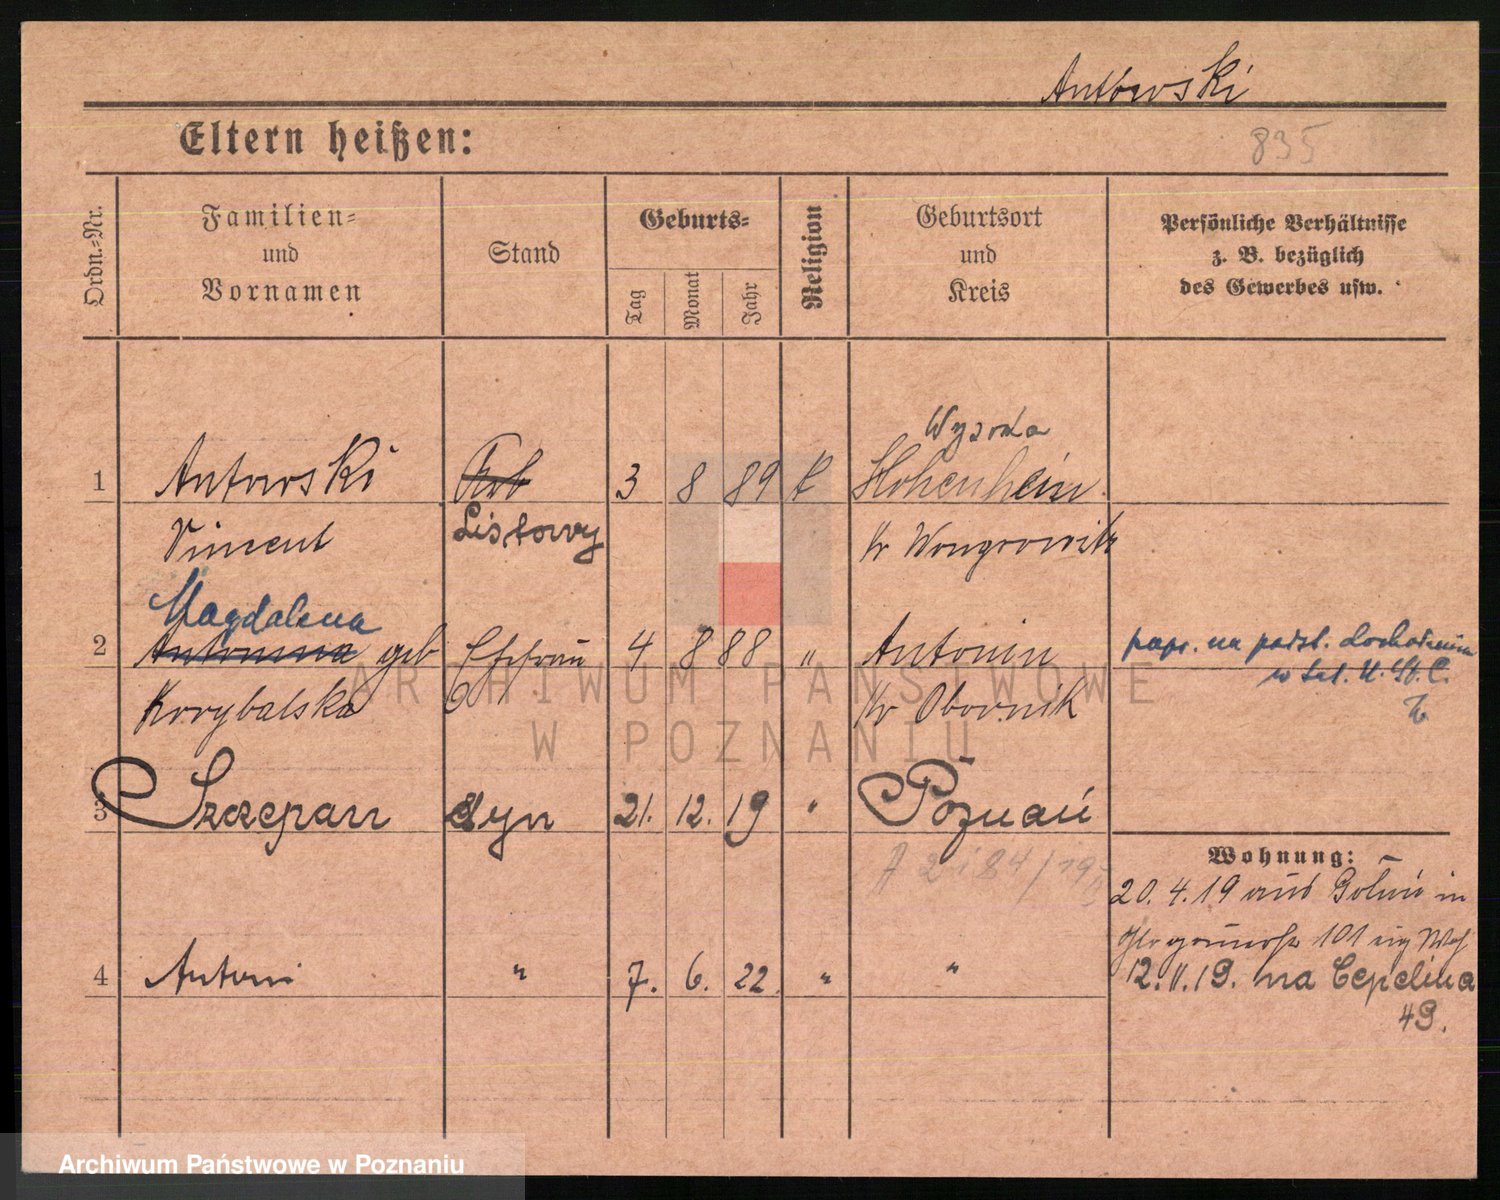 Antowski
Eltern heißen:
835
Ordn.-Nr.
Familien-
und
Vornamen
Stand
Geburts-
Tag
Monat
Jahr
Religion
Geburtsort
und
Kreis
Persönliche Verhältnisse
z. B. bezüglich
des Gewerbes usw.
Wysoka
1 Antowski Arb 3 8 89 k Hohenheim
Vincent Listowy Kr Wongrowitz
Magdalena
2 Antonina geb Ehefrau 4 8 88 " Antonin
Korybalska Kr Obornik
popr. na podst.
w U. St. C.
3 Szczepan Syn 21. 12. 19 " Poznań
Wohnung:
20. 4. 19 aus in
101
4 Antoni " 7. 6. 22. " "
12. 11. 19. na Cepelina
49.
ARCHIWUM PAŃSTWOWE
W POZNANIU
Archiwum Państwowe w Poznaniu